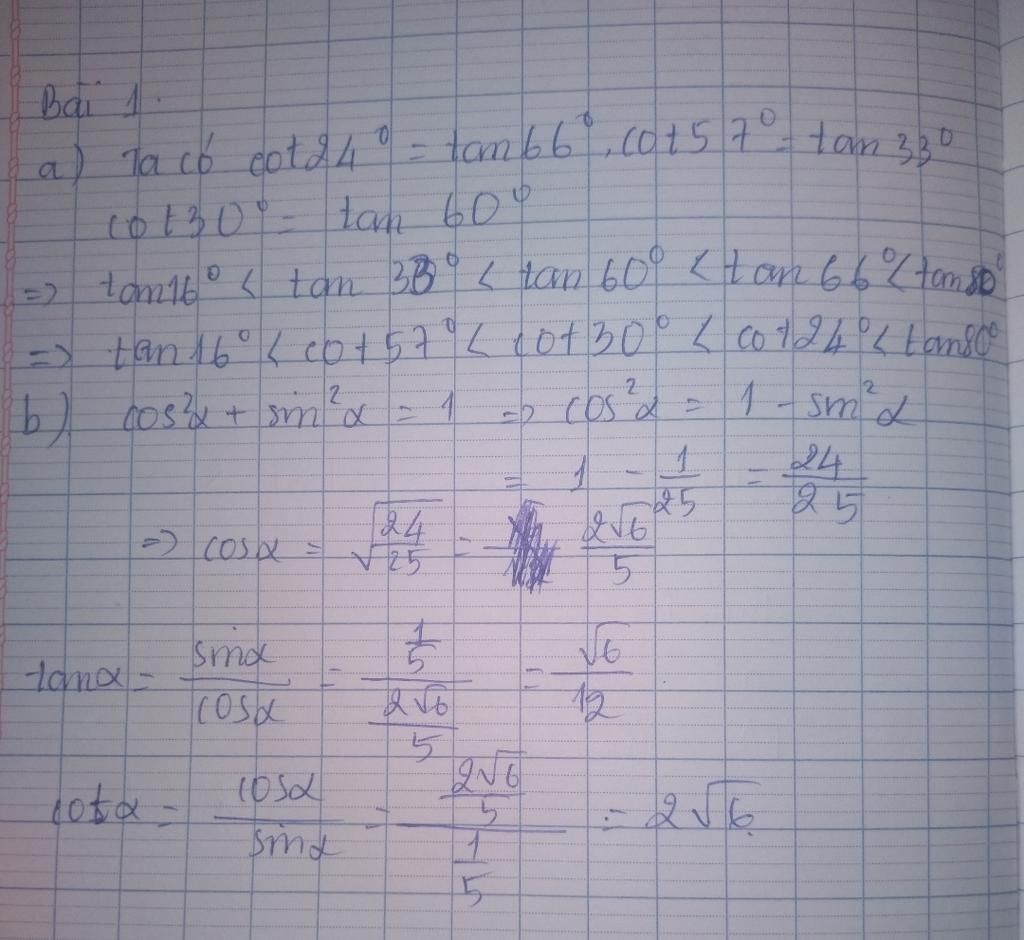 Bài 1.
a) Ta có cot24° = tan66°, cot57° = tan33°
cot30° = tan 60°
=> tan16° < tan 33° < tan60° < tan66° < tan80°
=> tan16° < cot57° < cot30° < cot24° < tan80°
b) cos²α + sin²α = 1 => cos²α = 1 - sin²α
= 1 - 1/25 = 24/25
=> cosα = √(24/25) = 2√6/5
tanα = sinα/cosα = (1/5)/(2√6/5) = √6/12
cotα = cosα/sinα = (2√6/5)/(1/5) = 2√6.